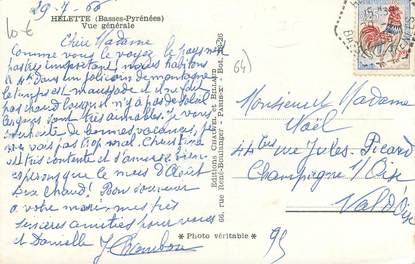 29-7-66
10€
HÉLETTE (Basses-Pyrénées)
Vue générale
Chère Madame
Comme vous le voyez le pays n'est
pas très important, nous habitons
dans un joli coin de montagne
le temps est maussade et il ne fait
pas chaud lorsqu'il n'y a pas de soleil
gens sont très aimables. Je vous
souhaite de bonnes vacances,
me vais pas trop mal. Christina
est très contente et s'amuse bien
espérons que le mois d'Août
sera chaud! Bon souvenir
à votre mari, mes très
sincères amitiés pour vous
et Danielle J. Chambon
Editions
66, rue René-Boulanger - Paris-X - Bot. 26
* Photo véritable *
64)
Monsieur Madame
Noël
44 rue Jules Picard
Champagne s/Oise
Val d'Oise
95